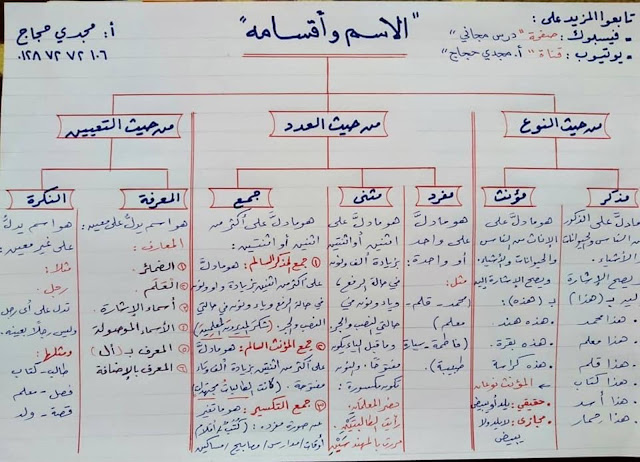 تابعوا المزيد على:
- فيسبوك: صفحة "درس مجاني"
- يوتيوب: قناة "أ. مجدي حجاج"
"الاسم وأقسامه"
أ: مجدي حجاج
٠١٢٨ ٧٢ ٧٢ ١٠٦
من حيث النوع
من حيث العدد
من حيث التعيين
مذكر
مؤنث
مفرد
مثنى
جمع
المعرفة
النكرة
مادلَّ على الذكور
من الناس والحيوانات
والأشياء.
ويصح الإشارة
إليه بـ (هذا)
• هذا محمد
• هذا معلم
• هذا قلم
• هذا كتاب
• هذا أسد
• هذا حمار
هو مادلَّ على
الإناث من الناس
والحيوانات والأشياء.
ويصح الإشارة إليه
بـ (هذه):
• هذه هند
• هذه بقرة.
• هذه كراسة
المؤنث نوعان
• حقيقي: يلد أو يبيض
• مجازي: لا يلد ولا
يبيض
هو مادلَّ
على واحد
أو واحدة:
مثل:
(محمد - قلم -
معلم)
(فاطمة - سيارة
طبيبة).
هو مادلَّ على
اثنين أو اثنتين
بزيادة ألف ونون
في حالة الرفع،
وياء ونون في
حالتي النصب والجر
وما قبل الياء يكون
مفتوحًا، والنون
تكون مكسورة:
حضر المعلمَانِ.
رأيت الطالبتَيْنِ
مررت بالمهندسَيْنِ
هو مادلَّ على أكثر من
اثنين أو اثنتين:
١ جمع المذكر السالم: هو مادلَّ
على أكثر من اثنين بزيادة واو ونون
في حالة الرفع وياء ونون في حالتي
النصب والجر:
٢ جمع المؤنث السالم: هو مادلَّ
على أكثر من اثنتين بزيادة ألف وتاء
مفتوحة. (كانت الطالبات مجتهدات)
٣ جمع التكسير: هو ما تغير
من صورة مفرده: (كُتُب / أقلام /
أوقات / مدارس / مصابيح / مساكين
هو اسم يدل على معين:
المعارف:
١ الضمائر.
٢ العَلَم.
٣ أسماء الإشارة
٤ الأسماء الموصولة
٥ المعرف بـ (أل)
٦ المعرف بالإضافة
هو اسم يدلُّ
على غير معين:
مثلًا:
رجل.
تدل على أي رجل
وليس رجلًا بعينه.
ومثلها:
طالب - كتاب
فصل - معلم
قصة - ولد